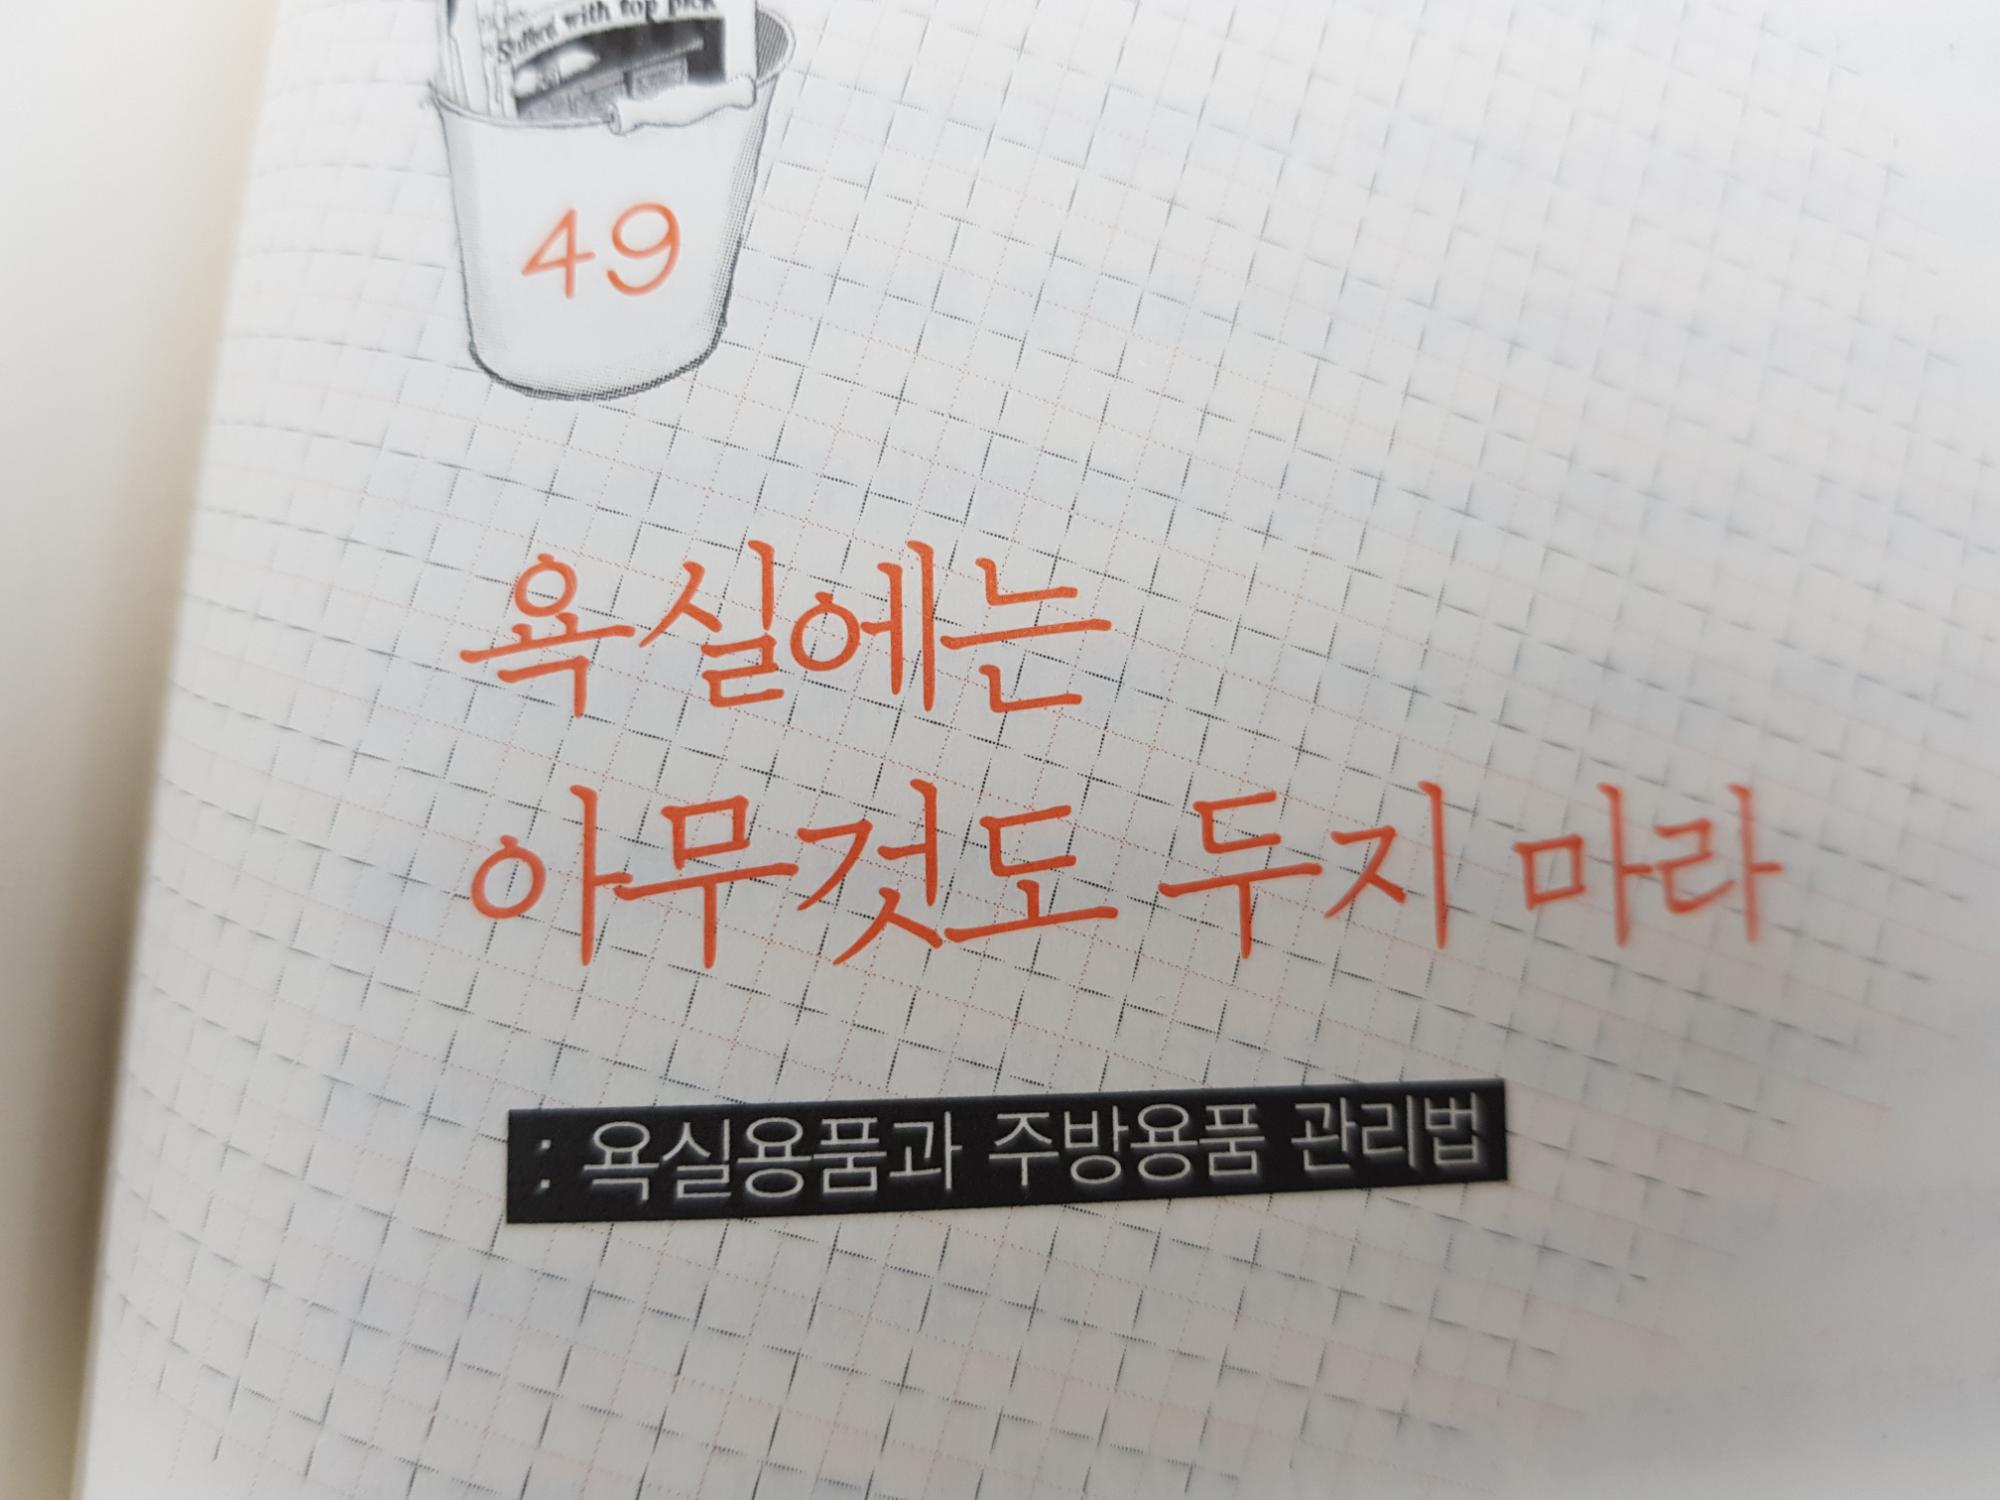 with top pick
49
욕실에는
아무것도 두지 마라
: 욕실용품과 주방용품 관리법